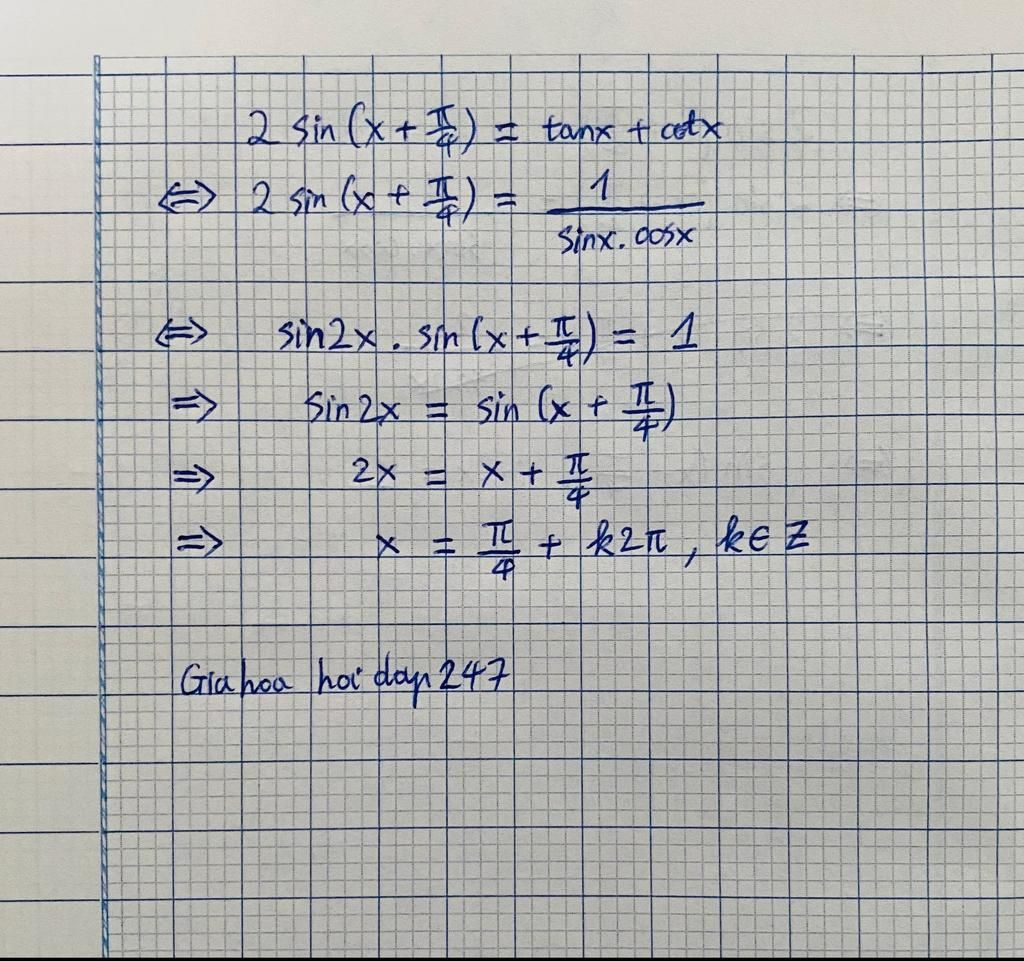 2 sin(x + π/4) = tanx + cotx
⇔ 2 sin(x + π/4) = 1/(sinx.cosx)
⇔ sin2x . sin(x + π/4) = 1
⇒ sin2x = sin(x + π/4)
⇒ 2x = x + π/4
⇒ x = π/4 + k2π, k∈Z
Giahoa hoi dap 247